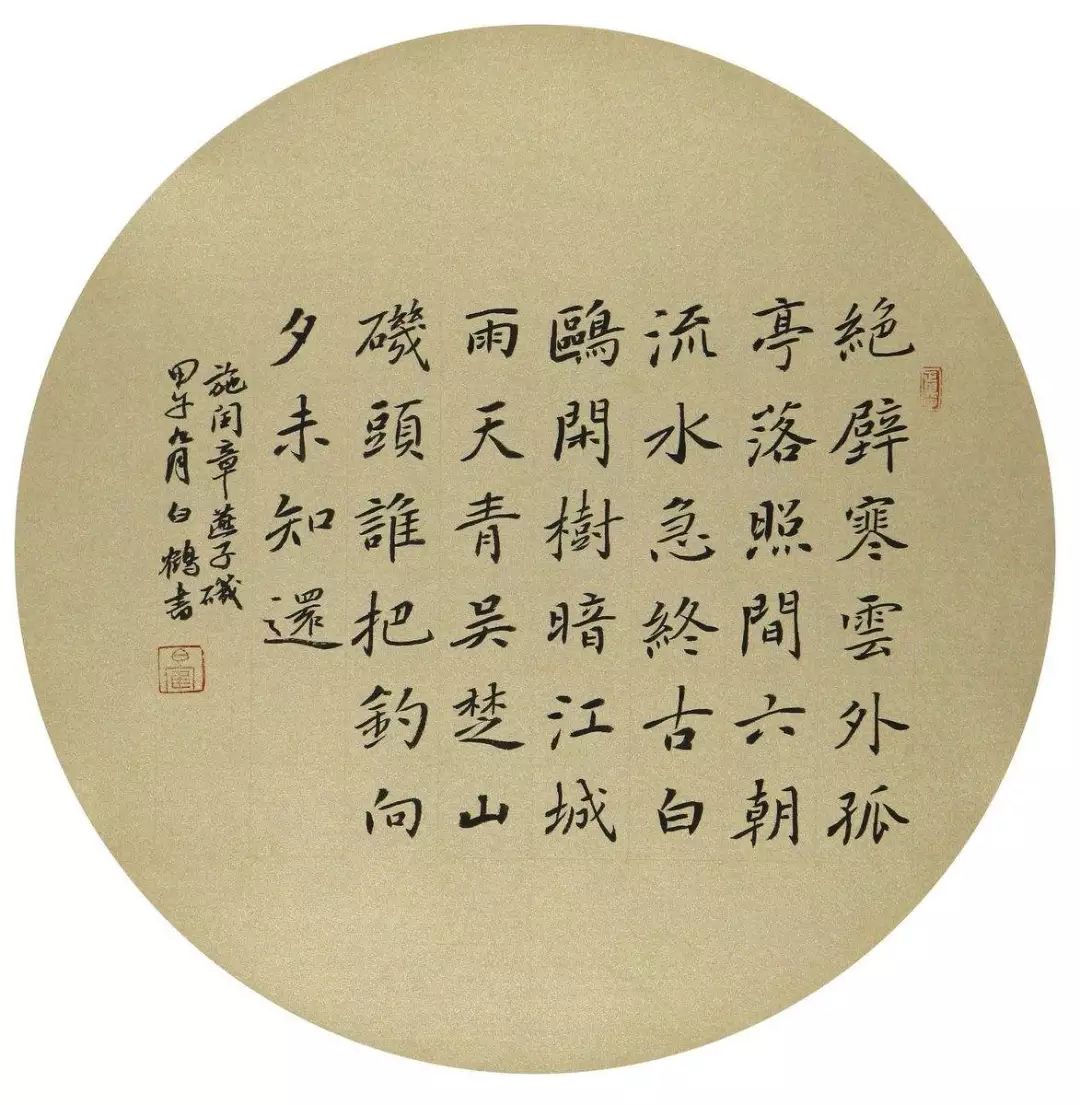 絕壁寒雲外孤
亭落照間六朝
流水急終古白
鷗閑樹暗江城
雨天青吳楚山
磯頭誰把釣向
夕未知還
施閏章燕子磯
甲午九月白鶴書